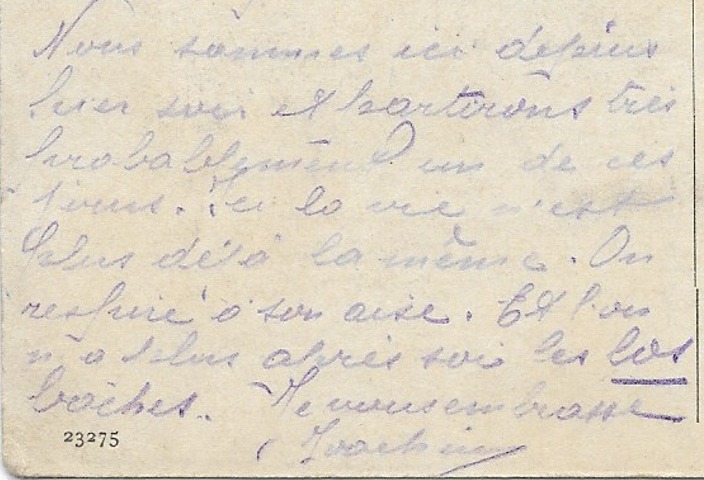 Nous sommes ici depuis
hier soir et partirons très
probablement un de ces
jours. Ici la vie n'est
plus déjà la même. On
respire à son aise. Et l'on
n'a plus après soi les
boches. Je vous embrasse
Joachim
23275